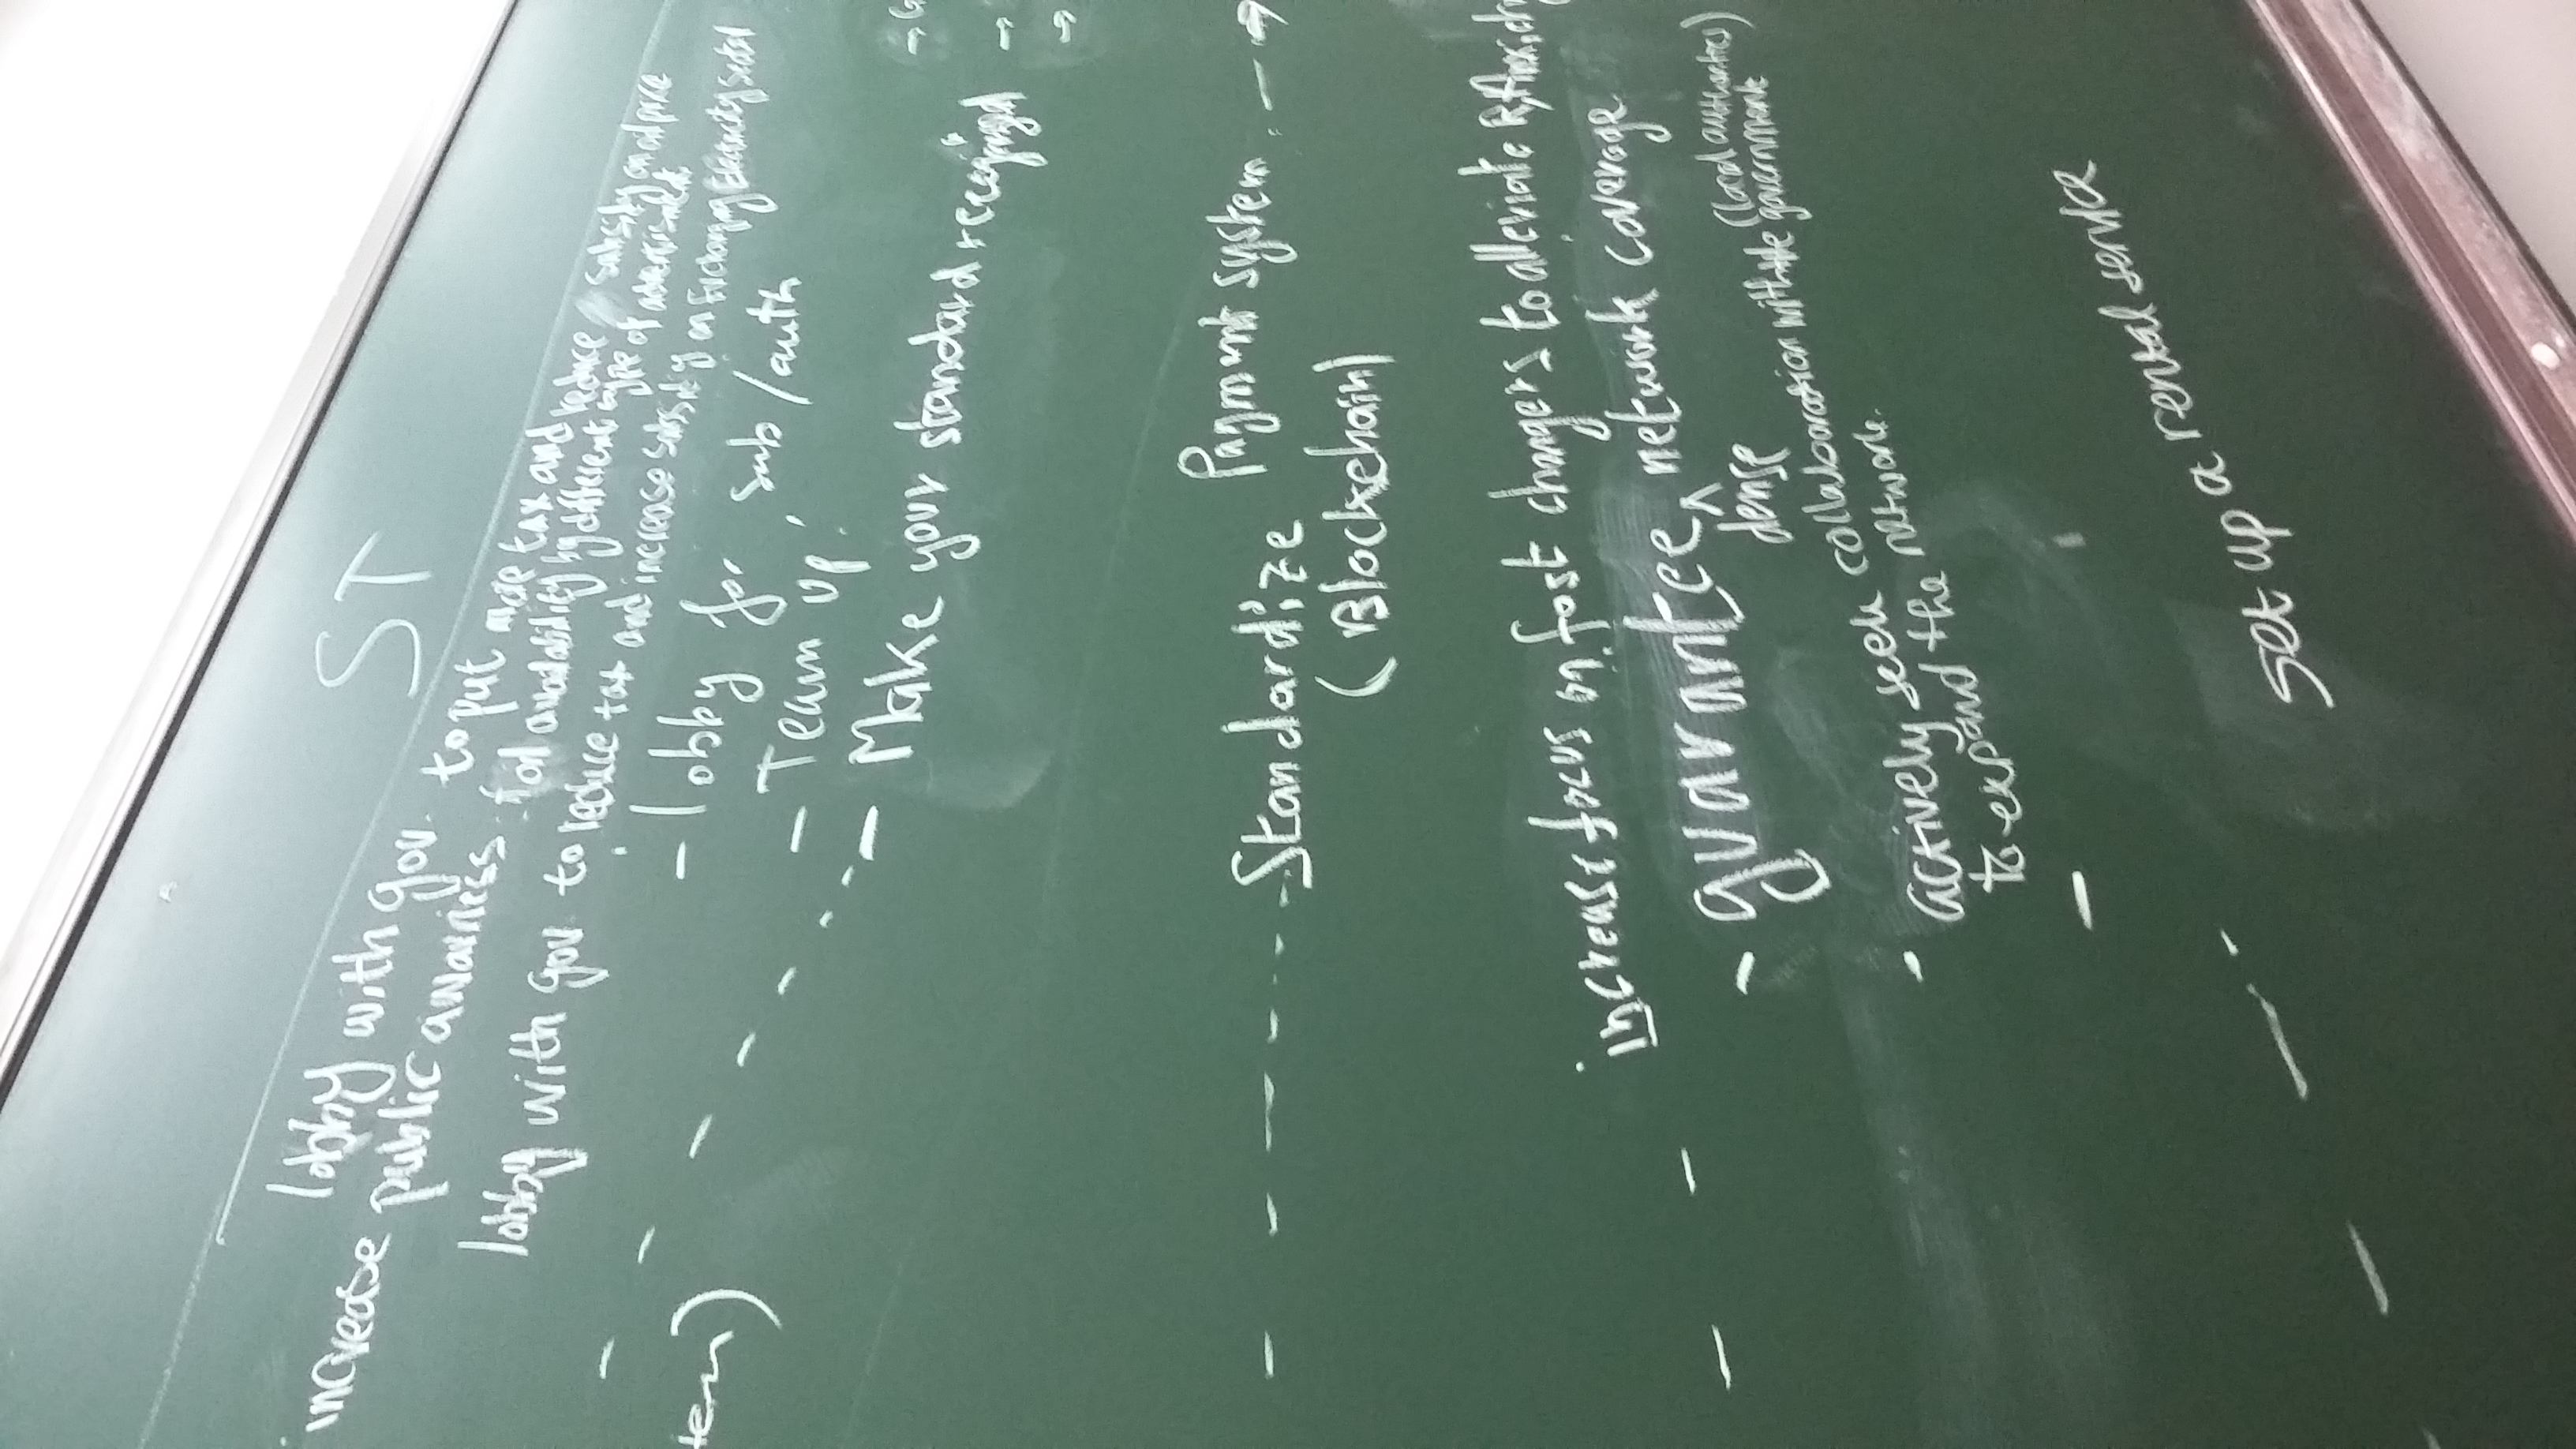 ST
lobby with gov. to put more tax and reduce subsidy on oil price
increase public awarness for availability by different type of advertisment
lobby with gov to reduce tax and increase subsidy on Electricity Sector
- lobby for sub/auth
tem)
- Team up!
- Make your standard recognized
Standardize Payment system
(Blockchain)
increase focus on fast chargers to alleviate
- guarantee network coverage
dense
(local authorities)
- actively seek collaboration with the government
to expand the network.
-
set up a rental service